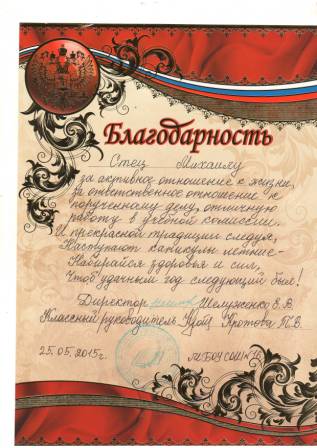 Благодарность
Стец Михаилу
за активное отношение к жизни,
за ответственное отношение к
порученному делу, отличную
работу в учебной комиссии.
И прекрасной традиции следуя,
Наступают каникулы летние-
Набирайся здоровья и сил,
Чтоб удачным год следующий был!
Директор Шелуженко Е.В.
Классный руководитель Кротова Т.В.
25.05.2015г. МБОУ СОШ